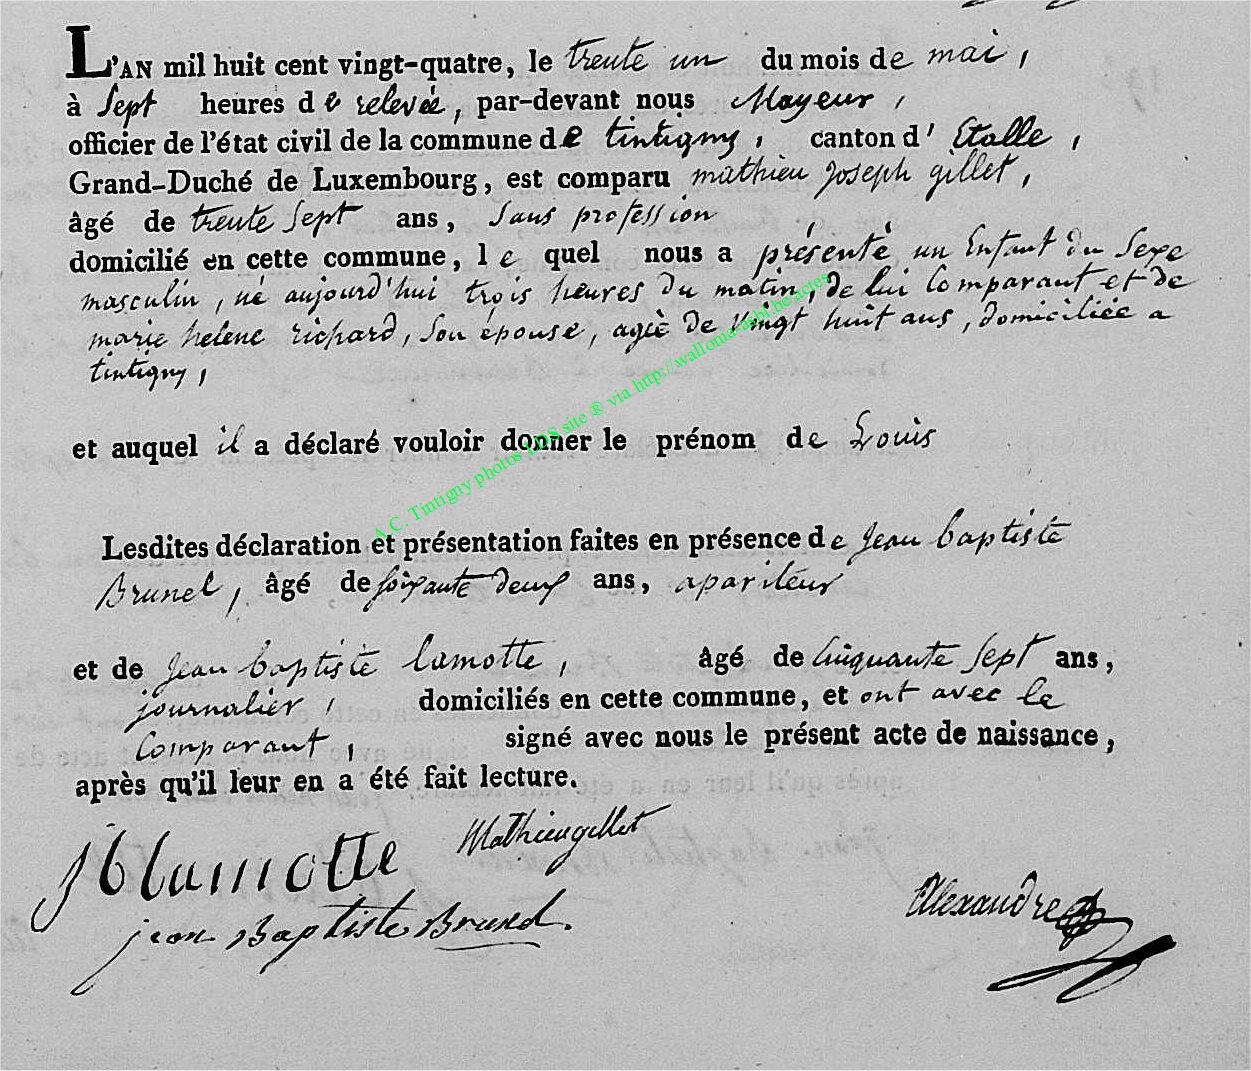 L'AN mil huit cent vingt-quatre, le trente un du mois de mai,
à Sept heures de relevée, par-devant nous Mayeur,
officier de l'état civil de la commune de tintigny, canton d'Etalle,
Grand-Duché de Luxembourg, est comparu mathieu joseph gillet,
âgé de trente Sept ans, Sans profession
domicilié en cette commune, le quel nous a présenté un Enfant du Sexe
masculin, né aujourd'hui trois heures du matin, de lui Comparant et de
marie helene richard, Son épouse, agée de vingt huit ans, domiciliée a
tintigny,
et auquel il a déclaré vouloir donner le prénom de Louis
A.C. Tintigny photos LDS site ® via http://wallonia-asbl.be.actes
Lesdites déclaration et présentation faites en présence de Jean baptiste
Brunel, âgé de soixante deux ans, apariteur
et de Jean baptiste lamotte, âgé de Cinquante Sept ans,
journalier, domiciliés en cette commune, et ont avec le
Comparant, signé avec nous le présent acte de naissance,
après qu'il leur en a été fait lecture.
Mathieugillet
jblamotte
jean Baptiste Brunel.
Alexandre